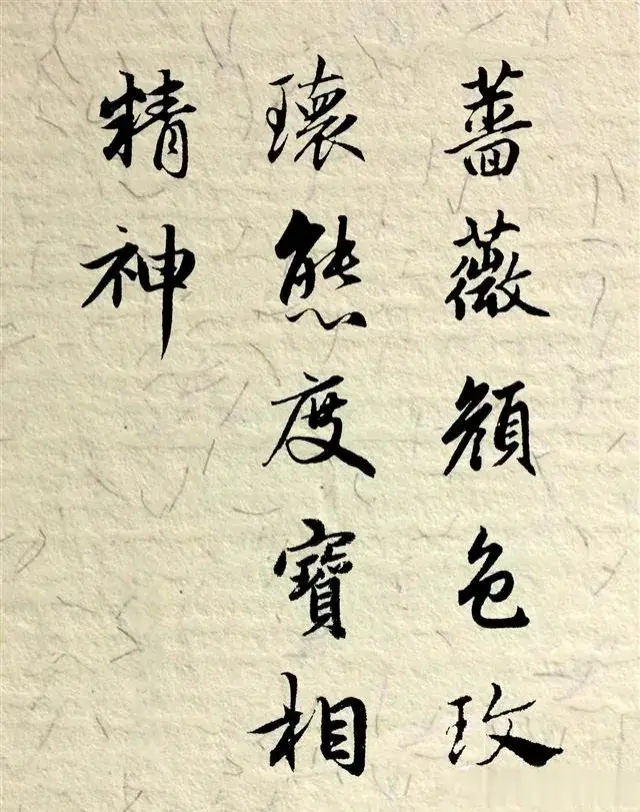 薔薇顏色玫
瓌態度寶相
精神